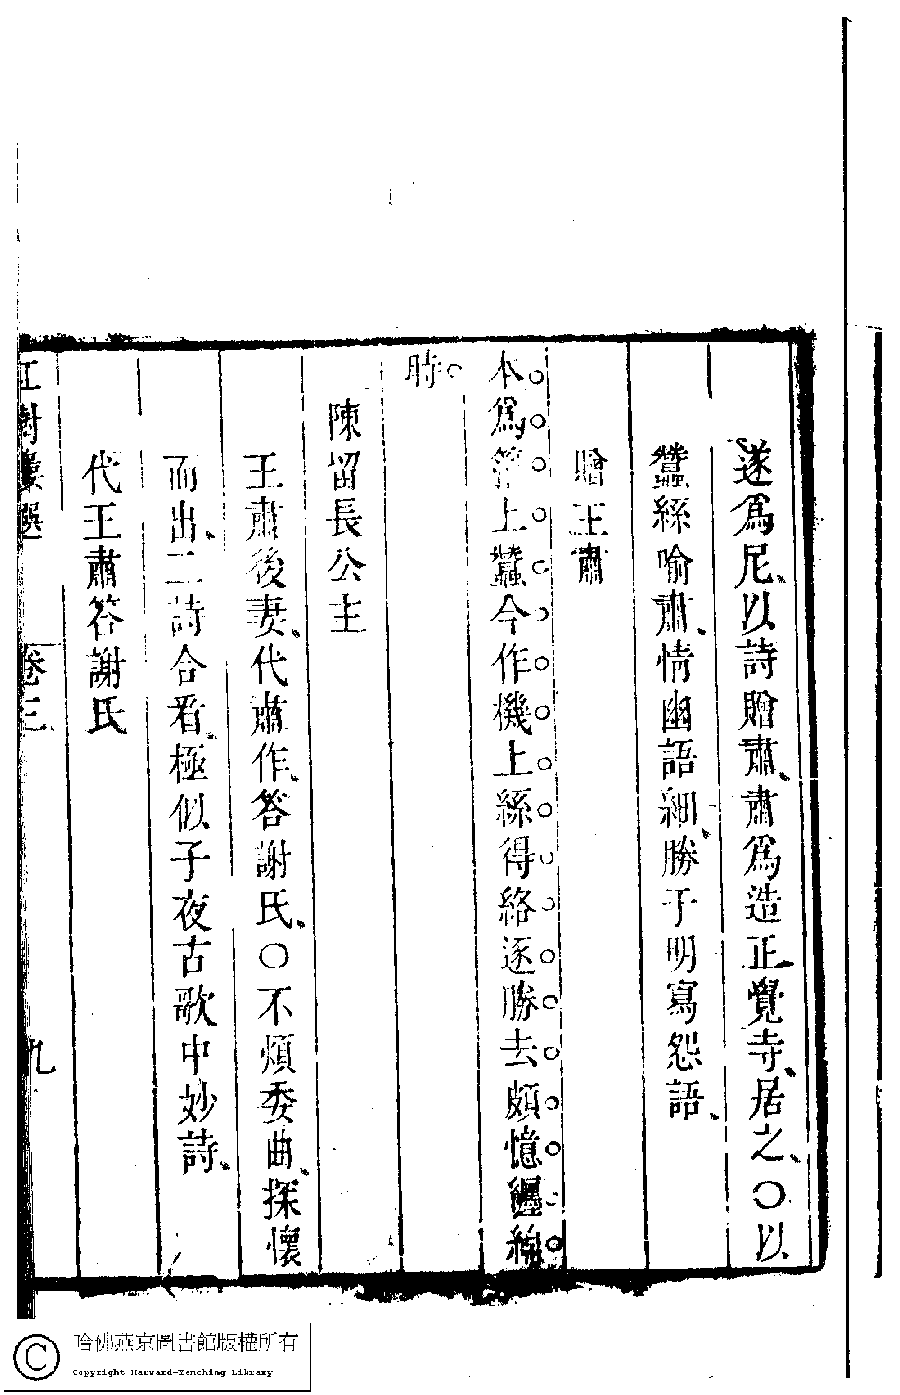 遂爲尼、以詩贈肅、肅爲造正覺寺、居之、〇以
蠶絲喻肅、情幽語細、勝于明寫怨語、
贈王肅
本爲箔上蠶今作機上絲得絡逐勝去頗憶纏綿
時
陳留長公主
王肅後妻、代肅作、答謝氏、〇不煩委曲、探懷
而出、二詩合看、極似子夜古歌中妙詩、
代王肅答謝氏
卷三
九
哈佛燕京圖書館版權所有
Copyright Harvard-Yenching Library